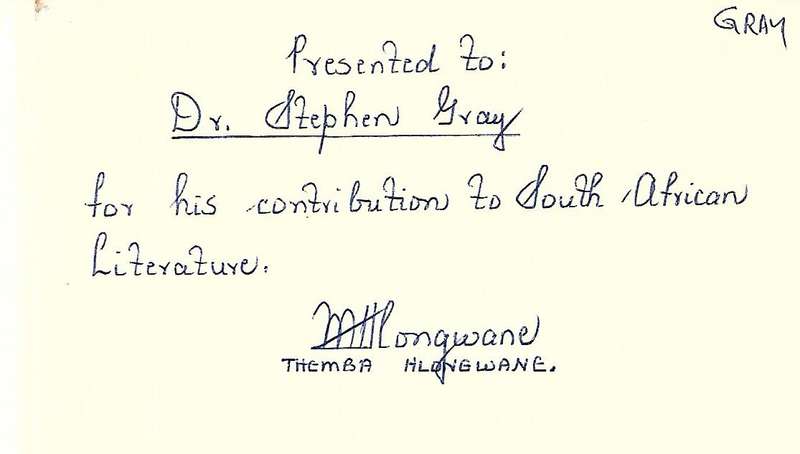 GRAY
Presented to:
Dr. Stephen Gray
for his contribution to South African
Literature.
MHlongwane
THEMBA HLONGWANE.